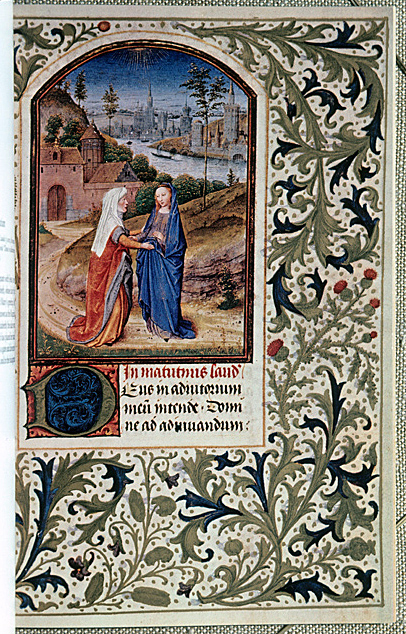 In matutinis laud
Deus in adiutorium
meũ intende. Domi
ne ad adiuuandum: